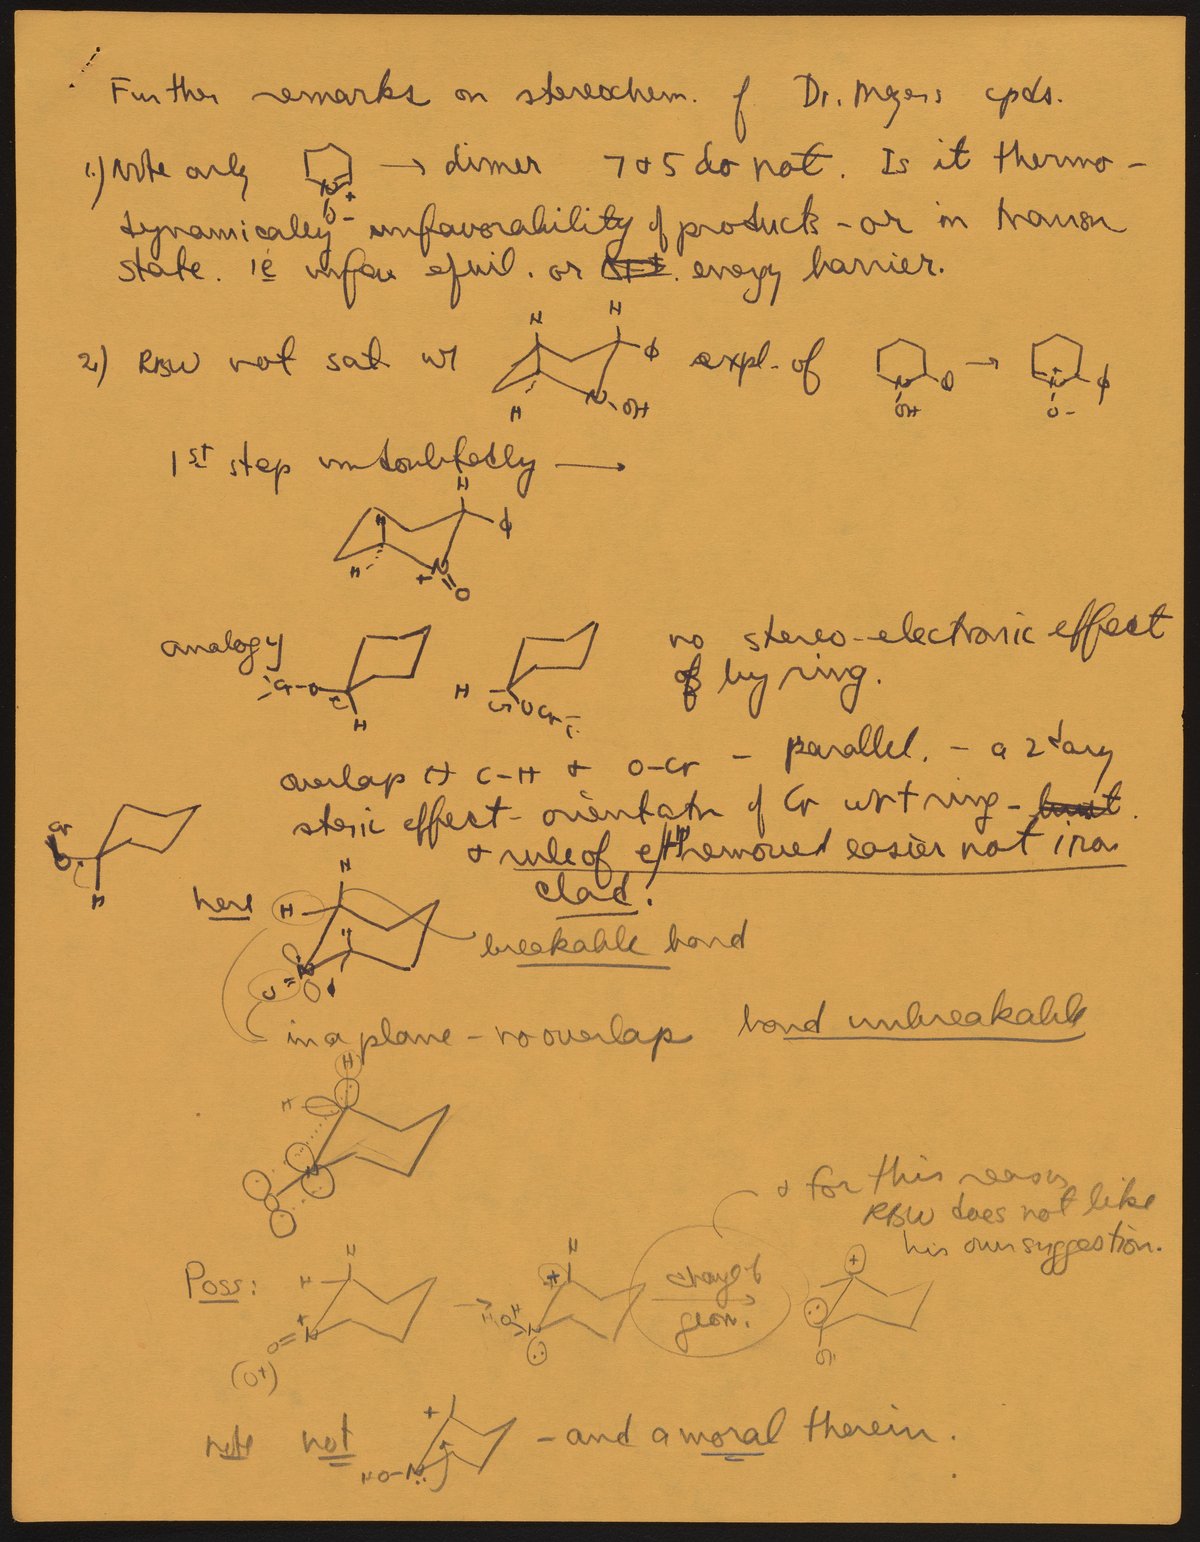 Further remarks on stereochem. of Dr. Meyers cpds.
1.) Note only N + O- → dimer 7 & 5 do not. Is it thermo-
dynamically unfavorability of products - or in transn
state. ie unfav equil. or energy barrier.
2.) RBW not sat w/ H H φ H N-OH expl. of N OH φ → N + O- φ
1st step undoubtedly →
H H φ H N + = O
analogy Cr-O H H O Cr no stereo-electronic effect
of by ring.
overlap H C-H & O-Cr - parallel. - a 2dary
steric effect - orientatn of Cr wrt ring - but
& rule of eq H removed easier not iron
clad!
Cr O H
here H H H N O breakable bond
in a plane - no overlap bond unbreakable
H H N
& for this reason
RBW does not like
his own suggestion.
Poss: H H + N O= (O+) → H + H HO N : change of geom. → + : OH
note not + HO-N: - and a moral therein.